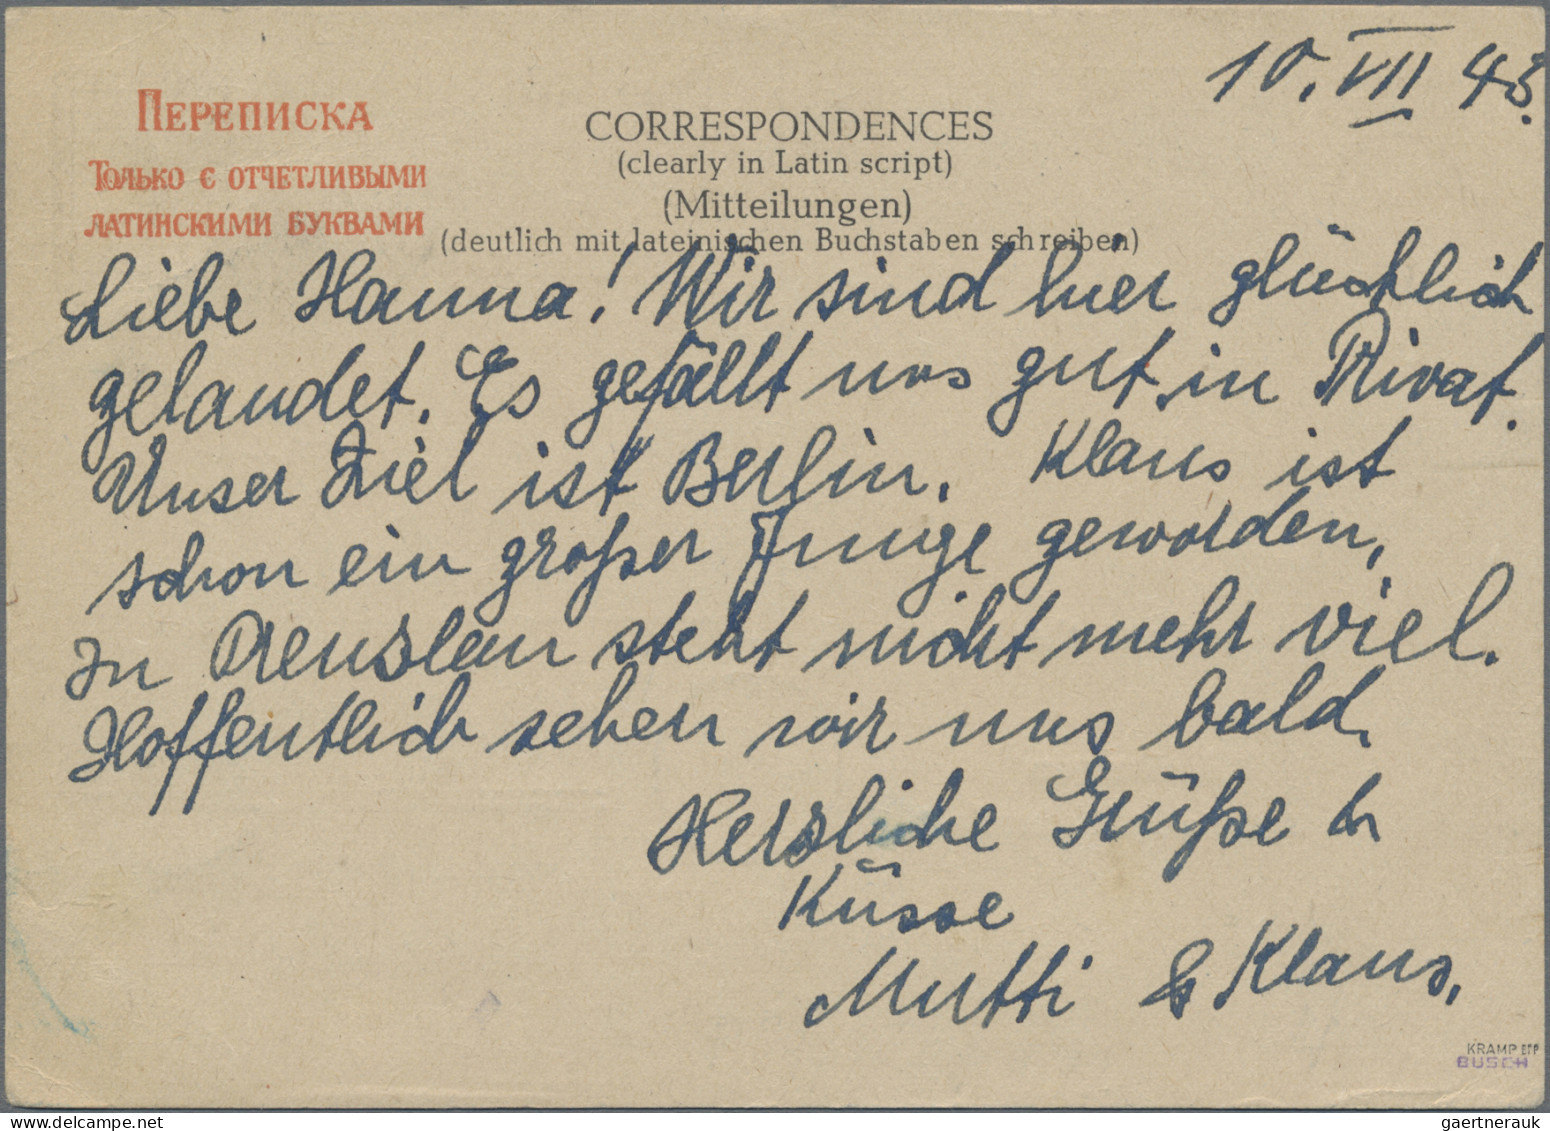 10. VII 43.
ПЕРЕПИСКА
ТОЛЬКО С ОТЧЕТЛИВЫМИ
ЛАТИНСКИМИ БУКВАМИ
CORRESPONDENCES
(clearly in Latin script)
(Mitteilungen)
(deutlich mit lateinischen Buchstaben schreiben)
Liebe Hanna! Wir sind hier glücklich
gelandet. Es gefällt uns gut in Privat.
Unser Ziel ist Berlin. Klaus ist
schon ein großer Junge geworden,
In Prenzlau steht nicht mehr viel.
Hoffentlich sehen wir uns bald.
Herzliche Grüße &
Küsse
Mutti & Klaus.
KRAMP BPP
BUSCH
gaertnerauk